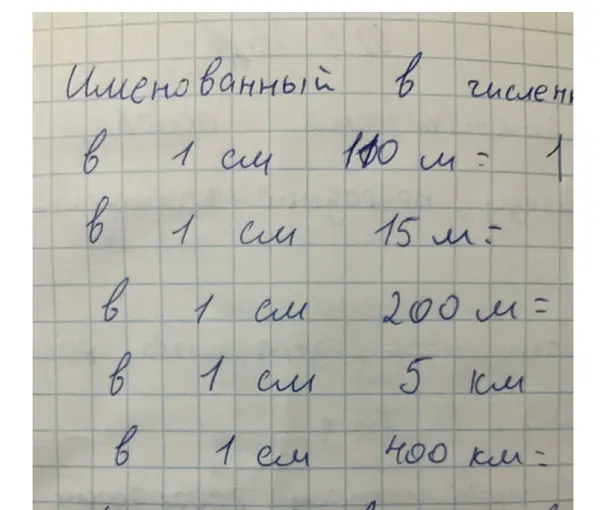 Именованный в числен
в 1 см 110 м = 1
в 1 см 15 м =
в 1 см 200 м =
в 1 см 5 км
в 1 см 400 км =